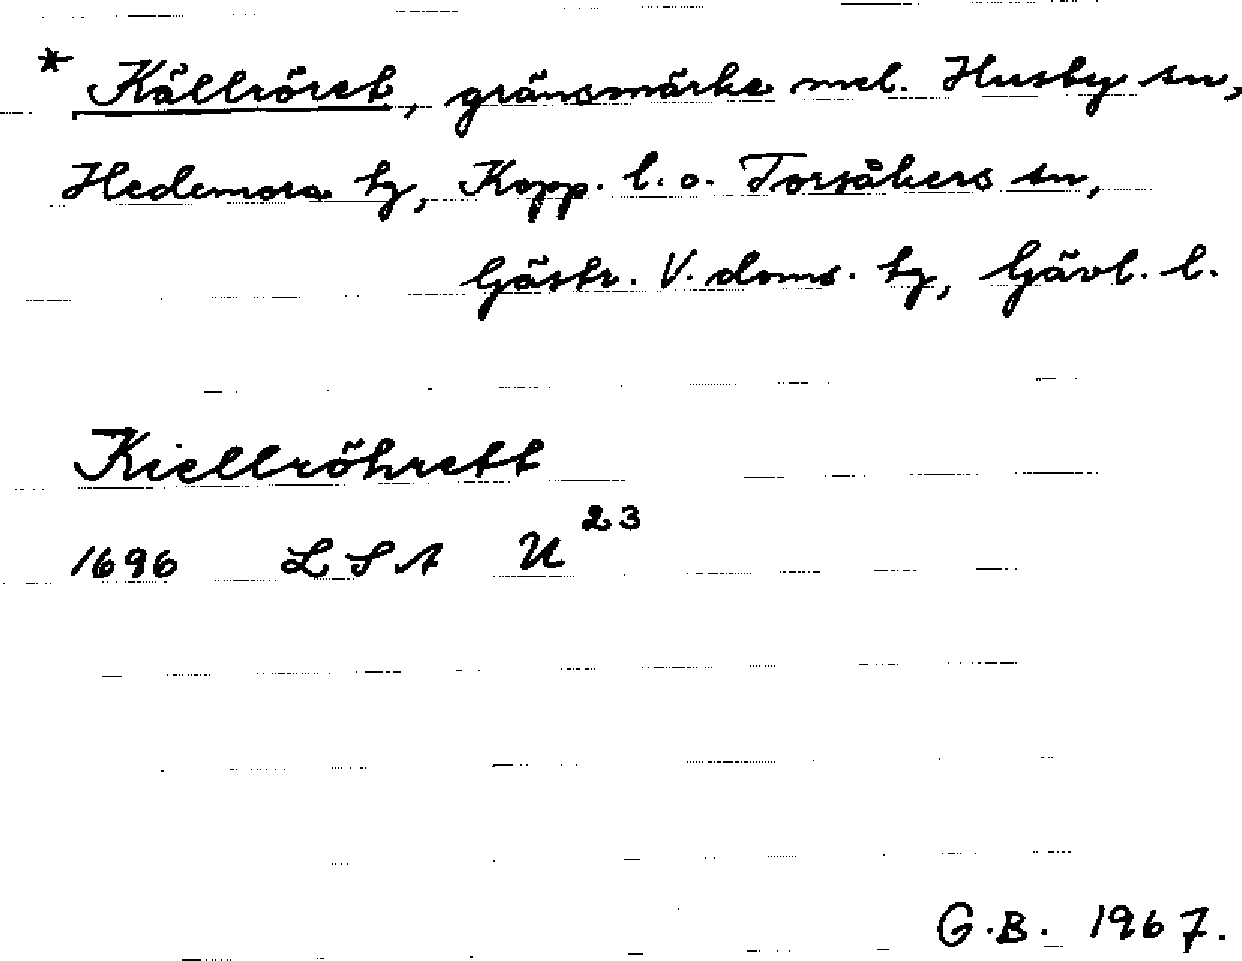 * Källröret, gränsmärke mel. Husby sn,
Hedemora hg, Kopp. l. o. Torsåkers sn,
Gästr. V. doms. hg, Gävl. l.
Kiellröhrett
1696 LSA U²³
G.B. 1967.